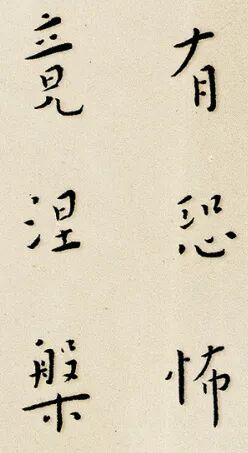 有恐怖
竟涅槃